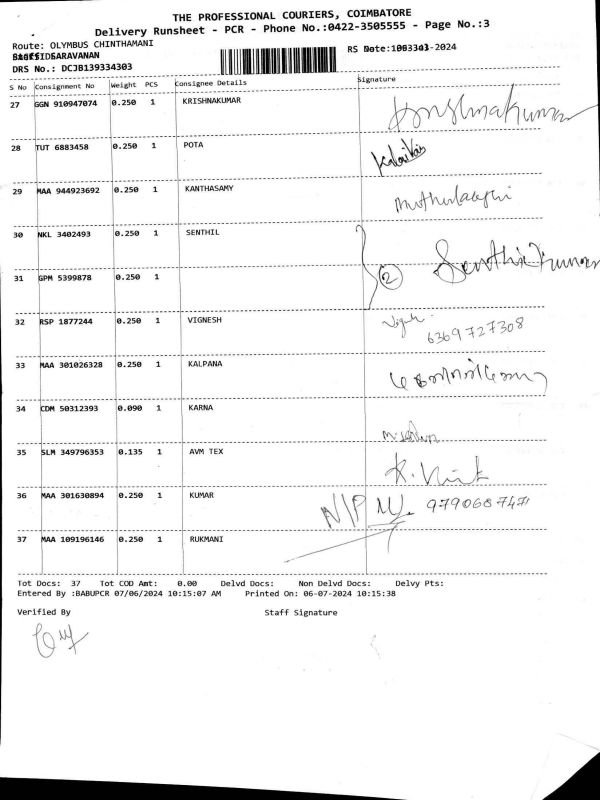 THE PROFESSIONAL COURIERS, COIMBATORE
Delivery Runsheet - PCR - Phone No.:0422-3505555 - Page No.:3
Route: OLYMBUS CHINTHAMANI
SARAVANAN
DRS No.: DCJB139334303
S No Consignment No Weight PCS Consignee Details Signature
27 GGN 910947074 0.250 1 KRISHNAKUMAR Krishnakumar
28 TUT 6883458 0.250 1 POTA
29 MAA 944923692 0.250 1 KANTHASAMY
30 NKL 3402493 0.250 1 SENTHIL
31 GPM 5399878 0.250 1 2 Senthilkumar
32 RSP 1877244 0.250 1 VIGNESH
6369727308
33 MAA 301026328 0.250 1 KALPANA
34 CDM 50312393 0.090 1 KARNA
35 SLM 349796353 0.135 1 AVM TEX
36 MAA 301630894 0.250 1 KUMAR N/P 9790687471
37 MAA 109196146 0.250 1 RUKMANI
Tot Docs: 37 Tot COD Amt: 0.00 Delvd Docs: Non Delvd Docs: Delvy Pts:
Entered By :BABUPCR 07/06/2024 10:15:07 AM Printed On: 06-07-2024 10:15:38
Verified By Staff Signature